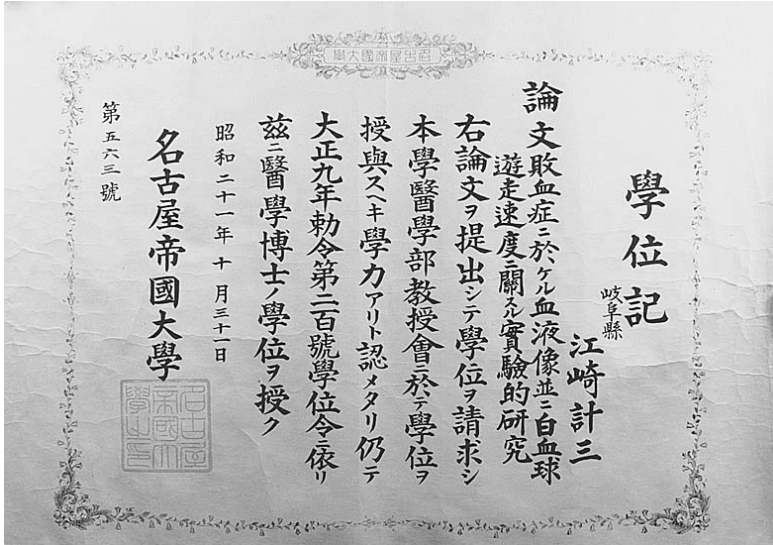 學大國帝屋古名
學位記
岐阜縣
江崎計三
論文敗血症ニ於ケル血液像並ニ白血球
遊走速度ニ關スル實驗的研究
右論文ヲ提出シテ學位ヲ請求シ
本學醫學部教授會ニ於テ學位ヲ
授與スヘキ學力アリト認メタリ仍テ
大正九年勅令第二百號學位令ニ依リ
玆ニ醫學博士ノ學位ヲ授ク
昭和二十一年十月三十一日
名古屋帝國大學
名古屋帝國大學之印
第五六三號